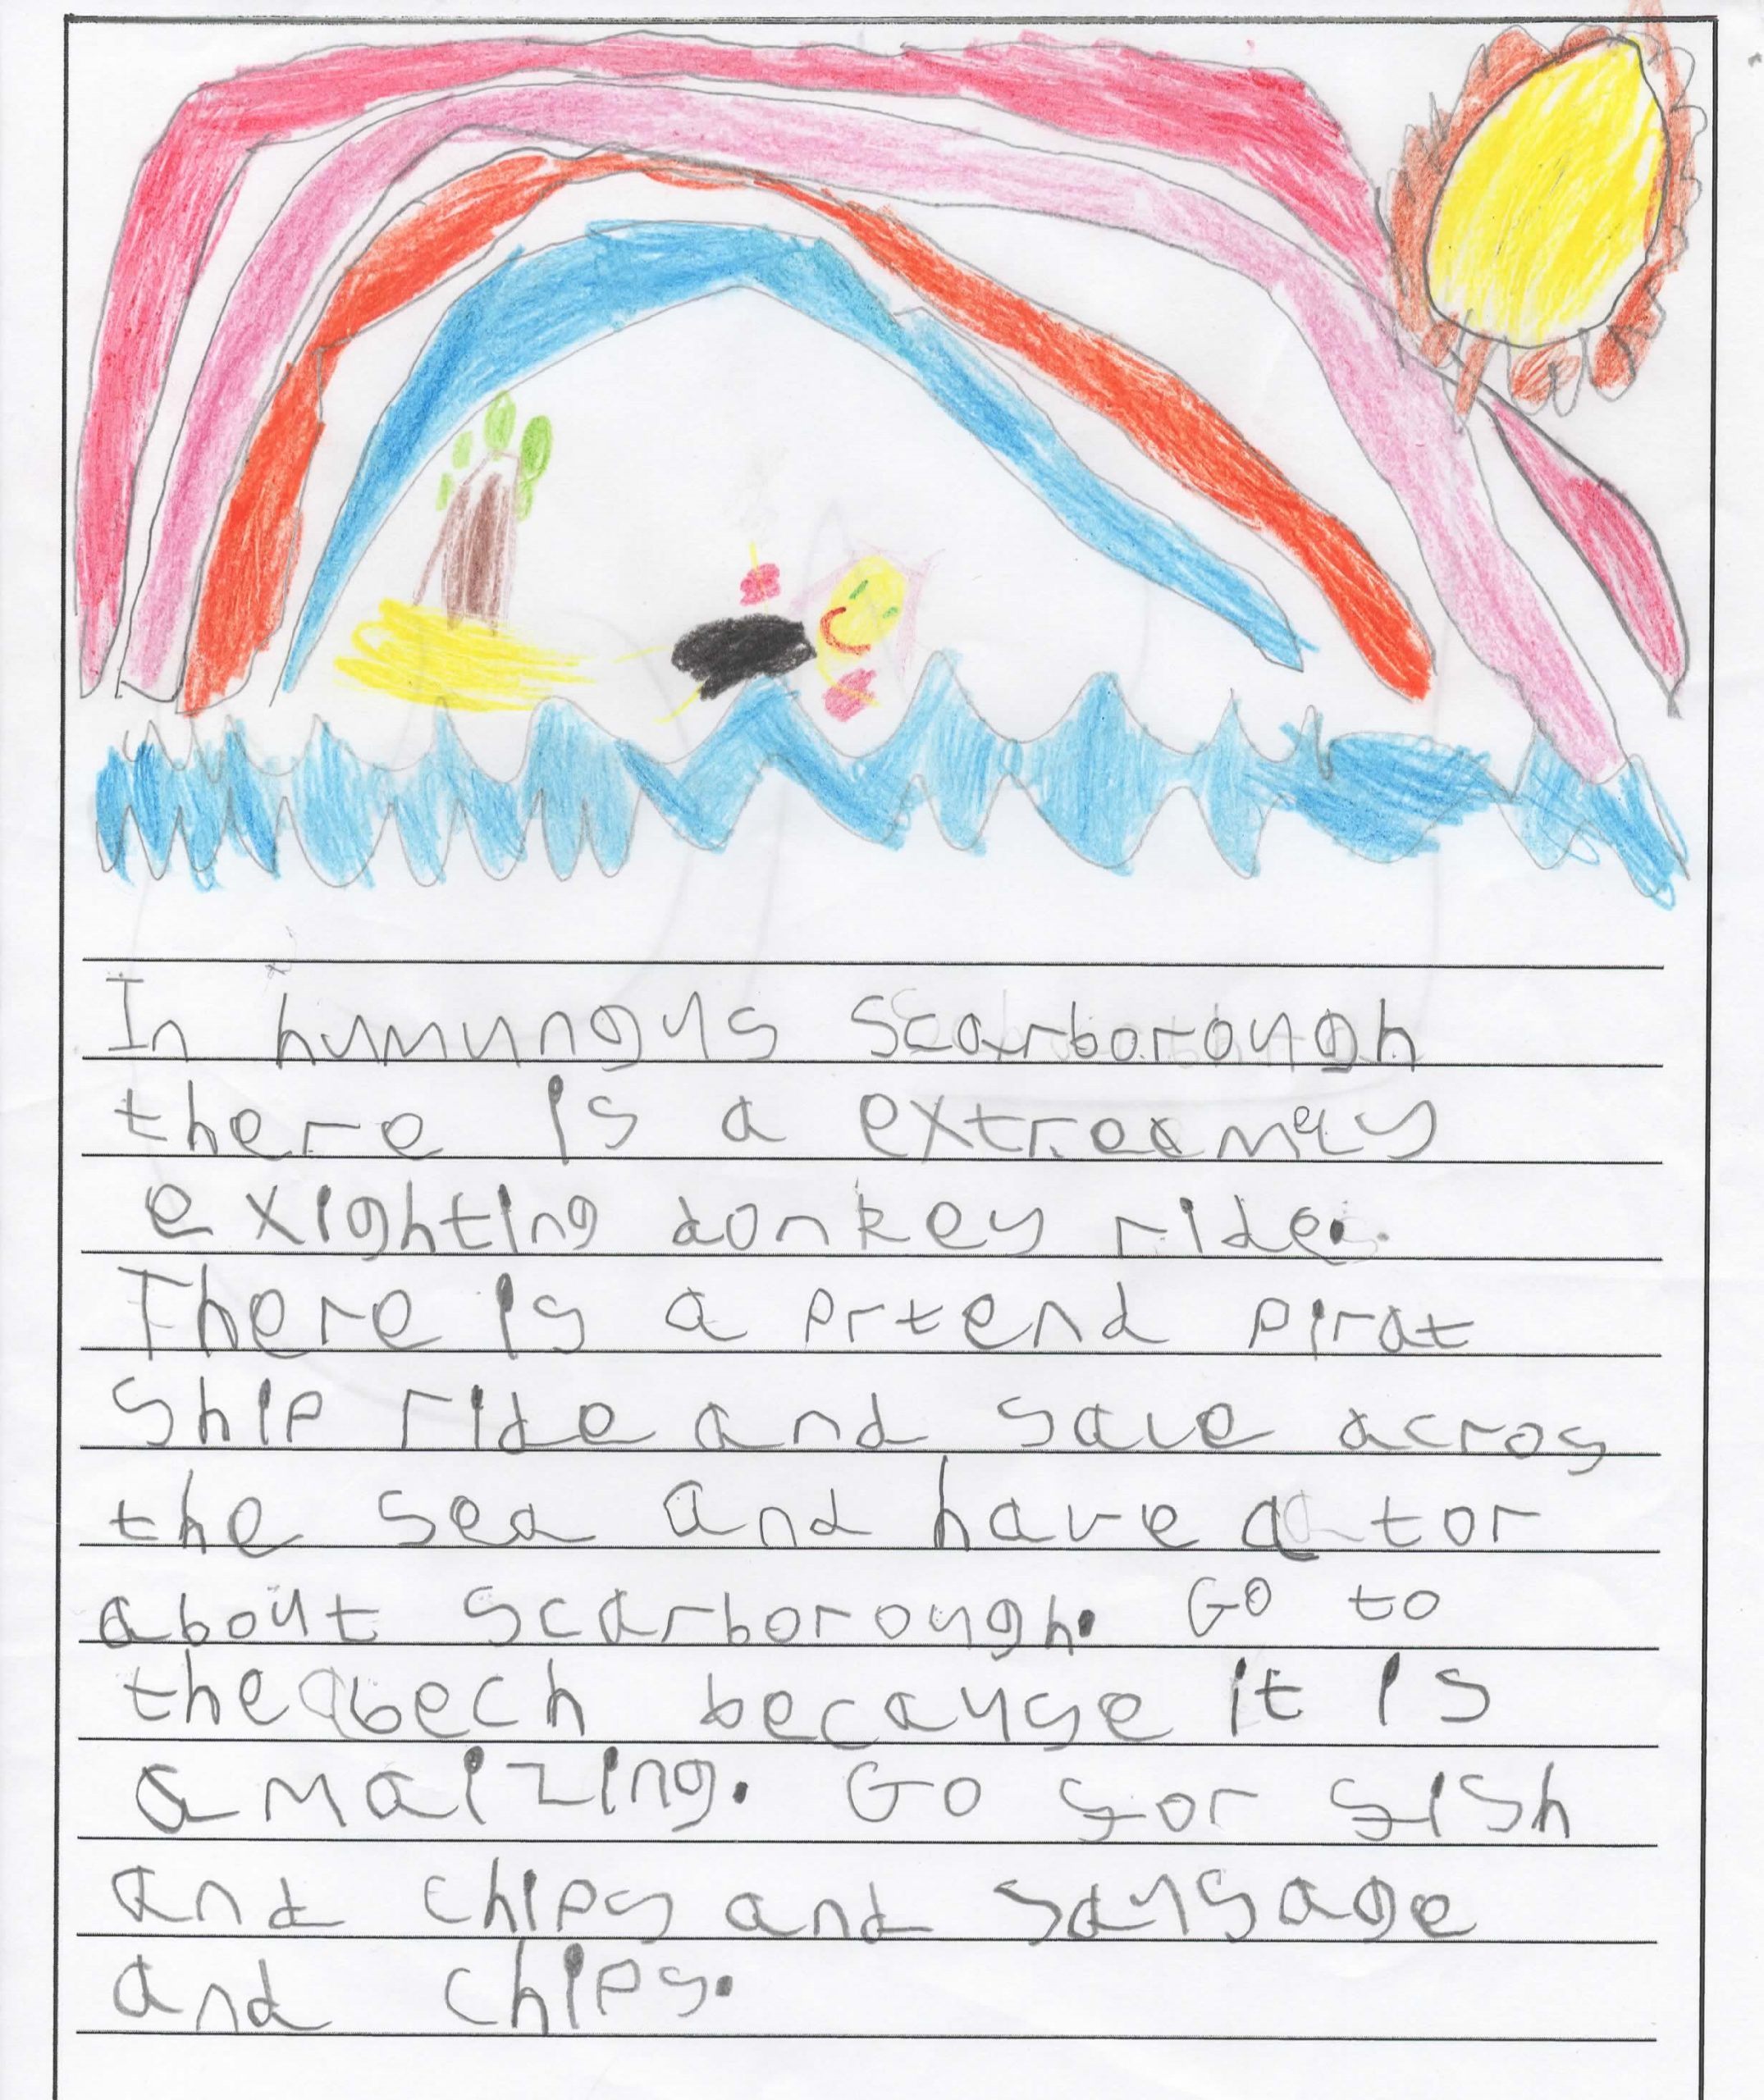 In humungus Scarborough
there is a extreamely
exighting donkey ride.
There is a prtend pirat
Ship ride and save acros
the sea and have a tor
about Scarborough. Go to
the bech because it is
amaizing. Go for fish
and chips and sausage
and chips.